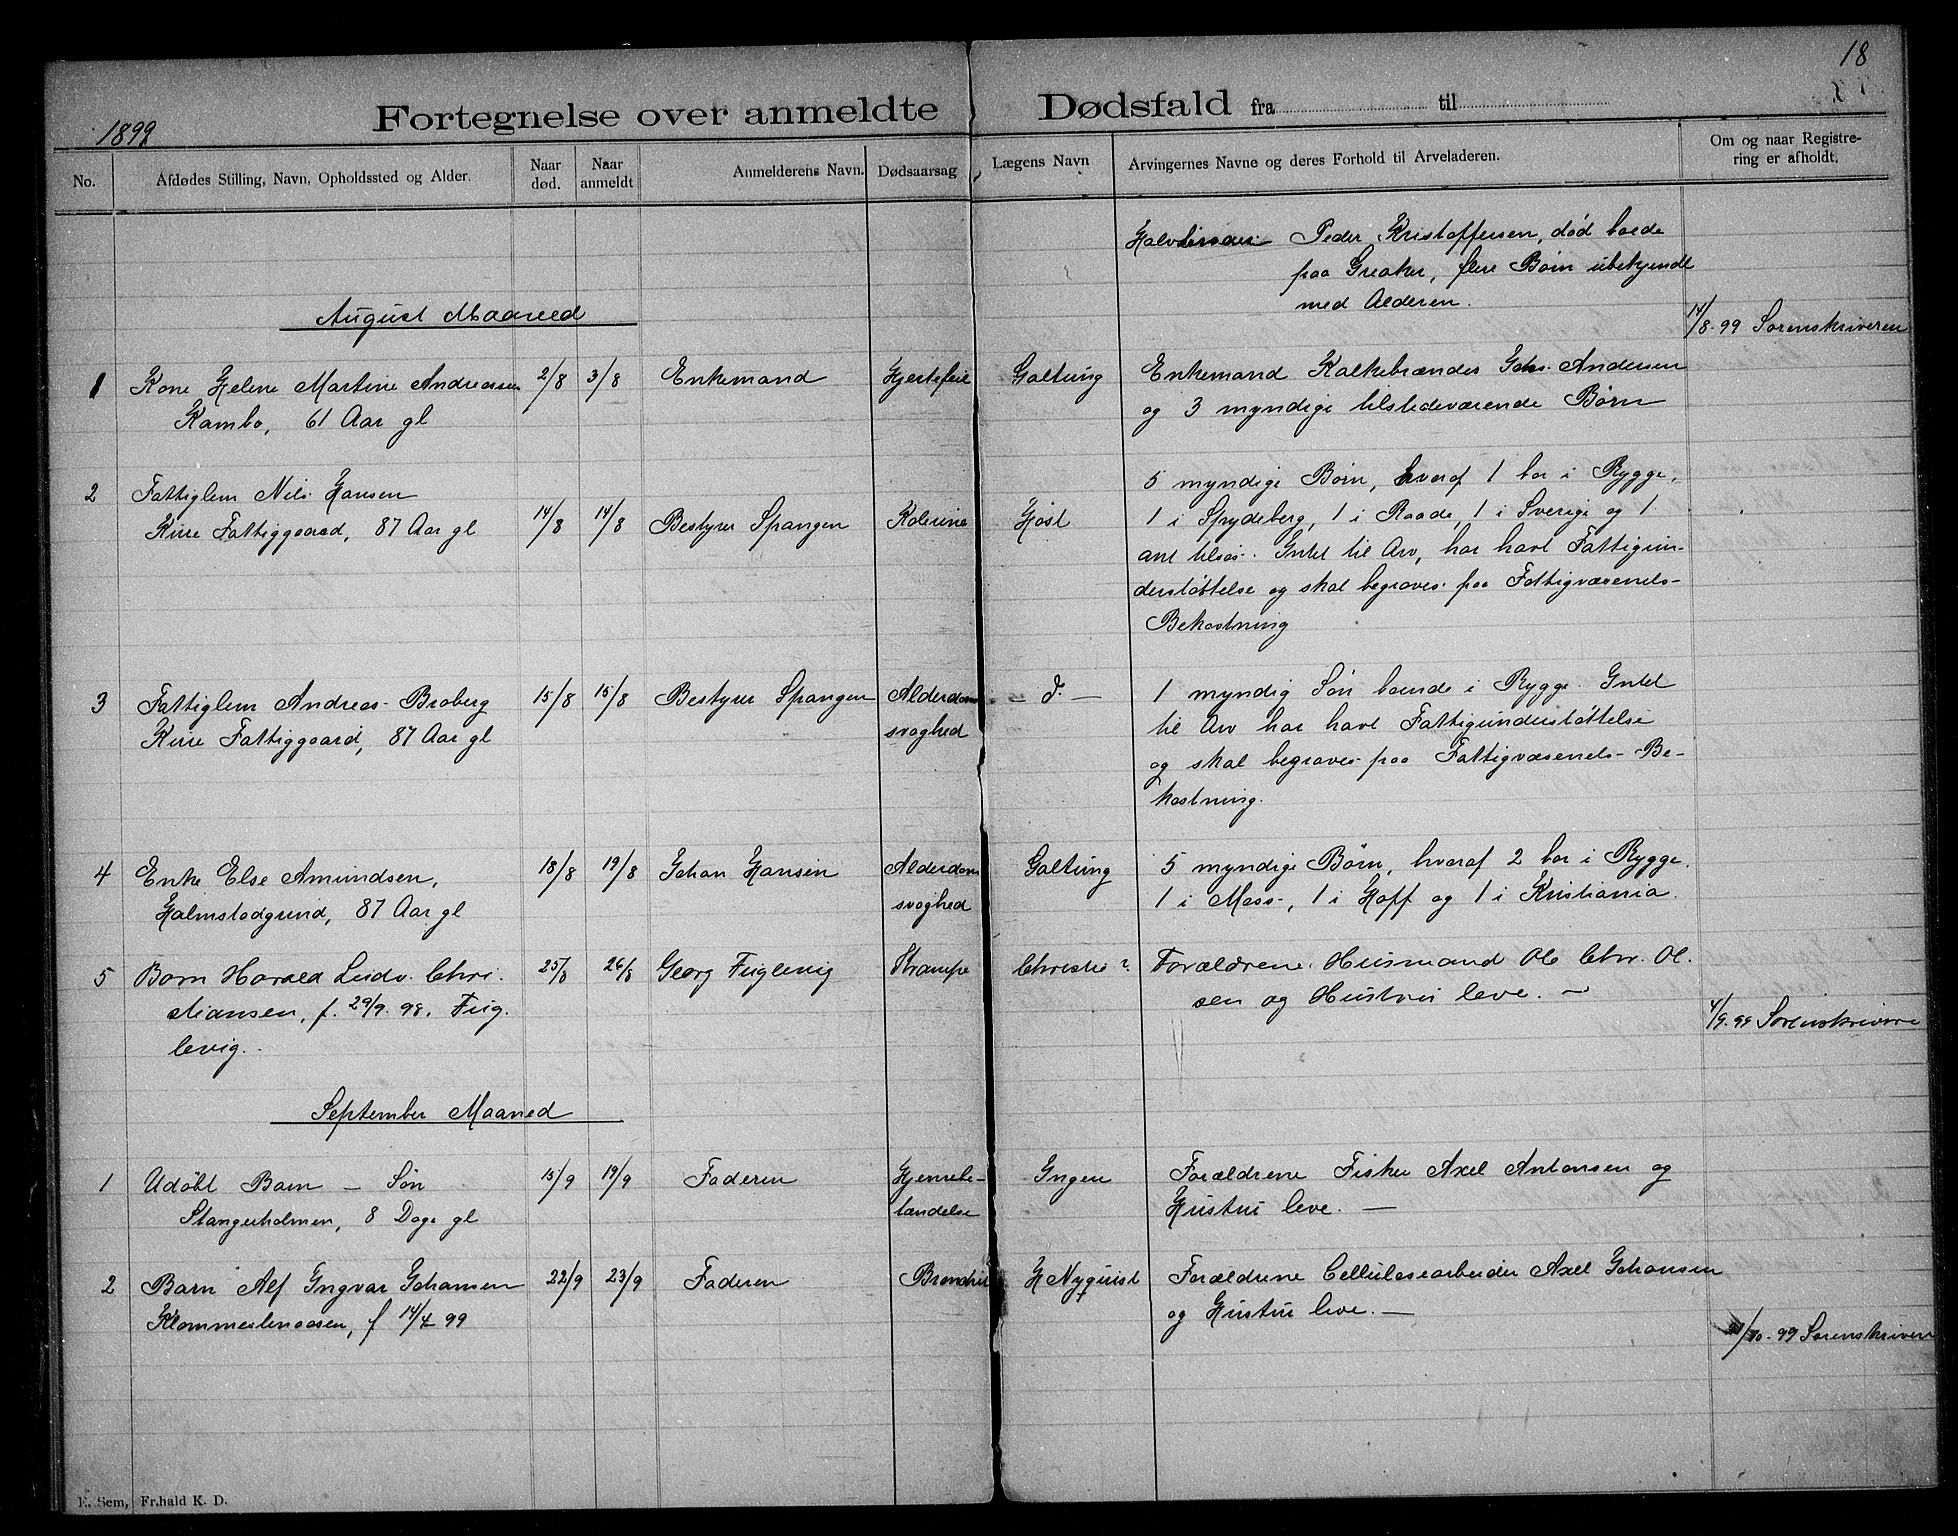 18
1899
Fortegnelse over anmeldte Dødsfald fra til
No.
Afdødes Stilling, Navn, Opholdssted og Alder.
Naar død.
Naar anmeldt
Anmelderens Navn.
Dødsaarsag
Lægens Navn
Arvingernes Navne og deres Forhold til Arveladeren.
Om og naar Registre-
ring er afholdt.
Halvbroder Peder Kristoffersen, død boede
paa Greaker, flere Børn ubekjendt
med Alderen.
August Maaned
14/8-99 Sorenskriveren
1 Kone Helene Martine Andreassen 2/8 3/8 Enkemand Hjertefeil Galtung Enkemand Kalkebrænder Johs. Andersen
Kambo, 61 Aar gl og 3 myndige tilstedeværende Børn
2 Fattiglem Nils Hansen 5 myndige Børn, hvoraf 1 bor i Rygge,
Kure Fattiggaard, 87 Aar gl 14/8 14/8 Bestyrer Spangen Kolerine Hjøst 1 i Spydeberg, 1 i Raade, 1 i Sverige og 1
ant tilsøs. Intet til Arv, har havt Fattigun-
derstøttelse og skal begraves paa Fattigvæsenets
Bekostning
3 Fattiglem Andreas Broberg 15/8 15/8 Bestyrer Spangen Alderdoms — d. — 1 myndig Søn boende i Rygge. Intet
Kure Fattiggaard, 87 Aar gl svaghed til Arv har havt Fattigunderstøttelse
og skal begraves paa Fattigvæsenets Be-
kostning.
4 Enke Else Amundsen, 18/8 19/8 Johan Hansen Alderdoms Galtung 5 myndige Børn, hvoraf 2 bor i Rygge.
Halmstadgrund, 87 Aar gl svaghed 1 i Moss, 1 i Hoff og 1 i Kristiania.
5 Barn Harald Ludv. Chri- 25/8 26/8 Georg Fuglevig Krampe Christie? Forældrene Husmand Ole Chr. Ol-
stiansen, f. 29/9.98. Fug- sen og Hustru leve. —
levig.
4/9-99 Sorenskrivere
September Maaned
1 Udøbt Barn — Søn 15/9 19/9 Faderen Hjernebe- Ingen Forældrene Fisker Axel Antonsen og
Stangerholmen, 8 Dage gl tændelse Hustru leve. —
2 Barn Alf Ingvar Johansen 22/9 23/9 Faderen H Nyquist Forældrene Cellulosearbeider Axel Johansen
f 14/4 99 og Hustru leve. —
/10-99 Sorenskriveren
E. Sem, Fr.hald K. D.